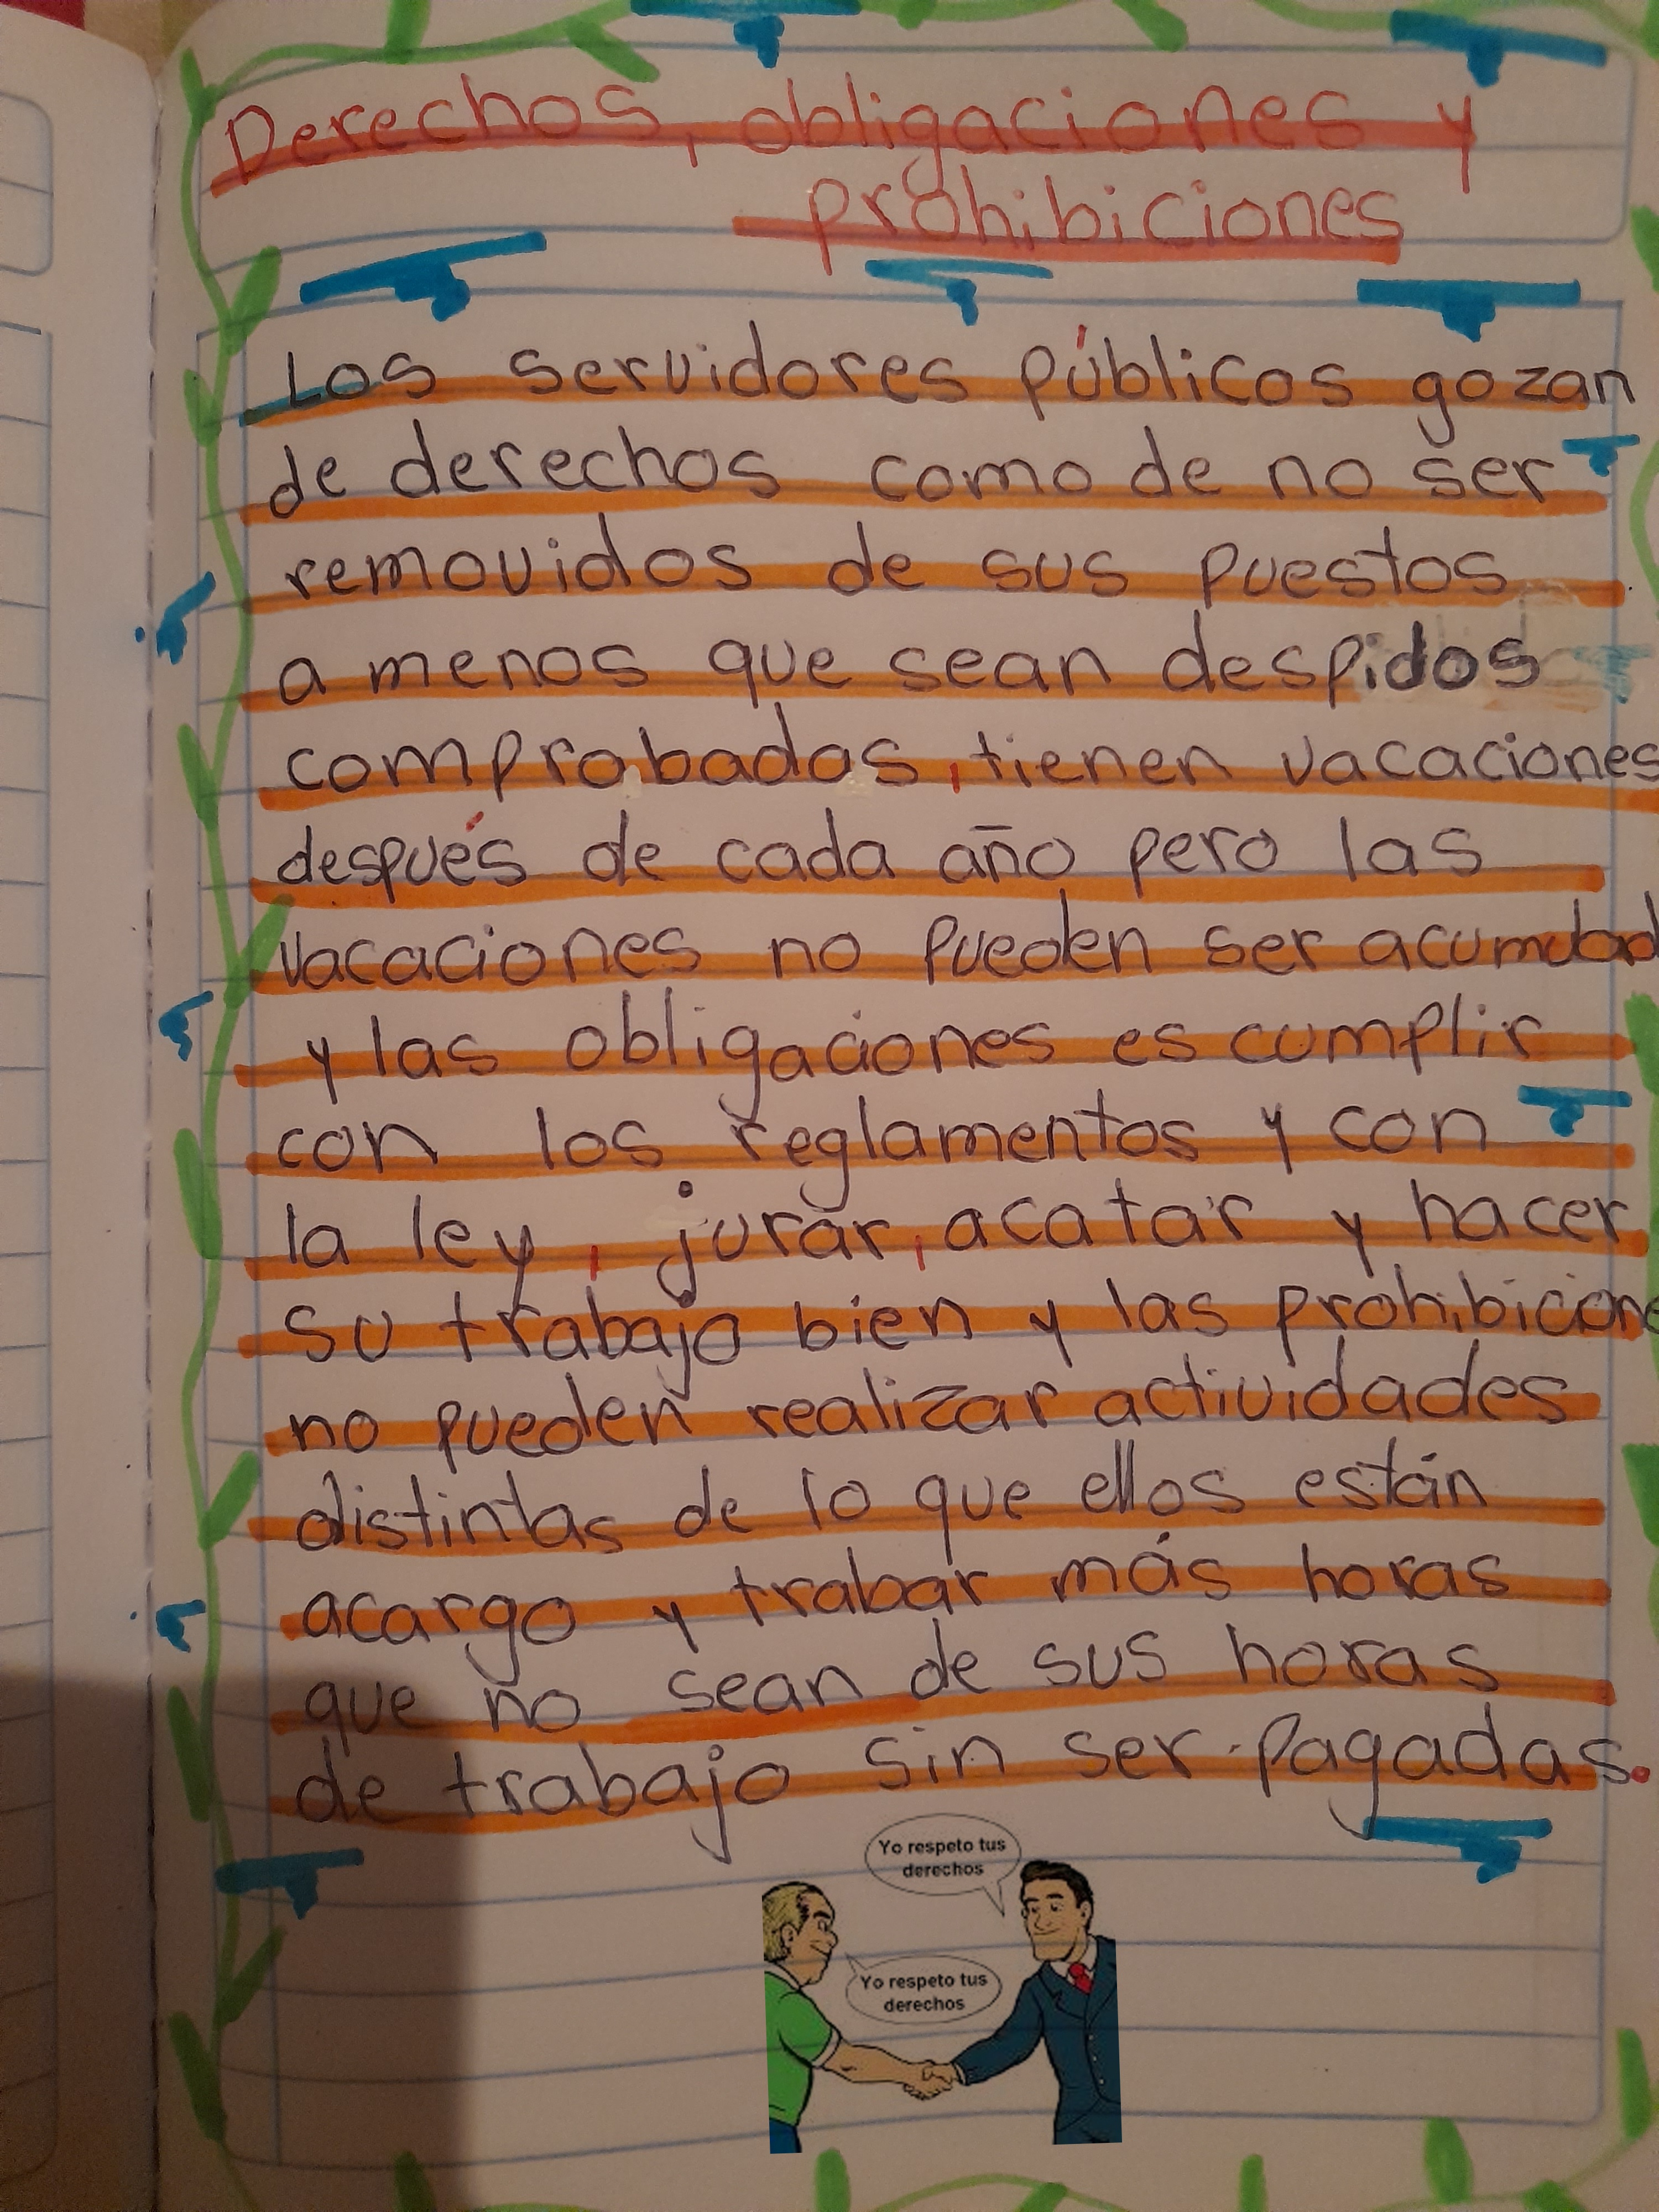 Derechos, obligaciones y
prohibiciones
Los servidores públicos gozan
de derechos como de no ser
removidos de sus puestos
a menos que sean despidos
comprobados, tienen vacaciones
después de cada año pero las
vacaciones no pueden ser acumulad
y las obligaciones es cumplir
con los reglamentos y con
la ley, jurar, acatar y hacer
su trabajo bien y las prohibicione
no pueden realizar actividades
distintas de lo que ellos están
acargo y trabar más horas
que no sean de sus horas
de trabajo sin ser pagadas.
Yo respeto tus
derechos
Yo respeto tus
derechos